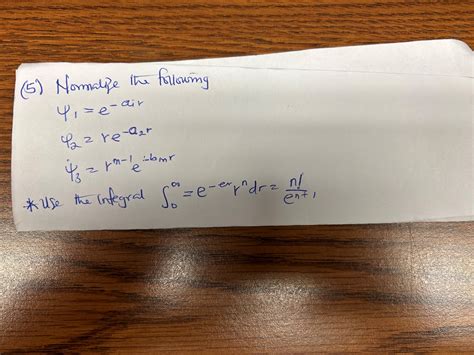 (5) Normalize the following
ψ₁ = e^{-a₁r}
ψ₂ = re^{-a₂r}
ψ₃ = r^{n-1} e^{-bmr}
* Use the integral ∫₀^∞ = e^{-er} rⁿ dr = n!/e^{n+1}